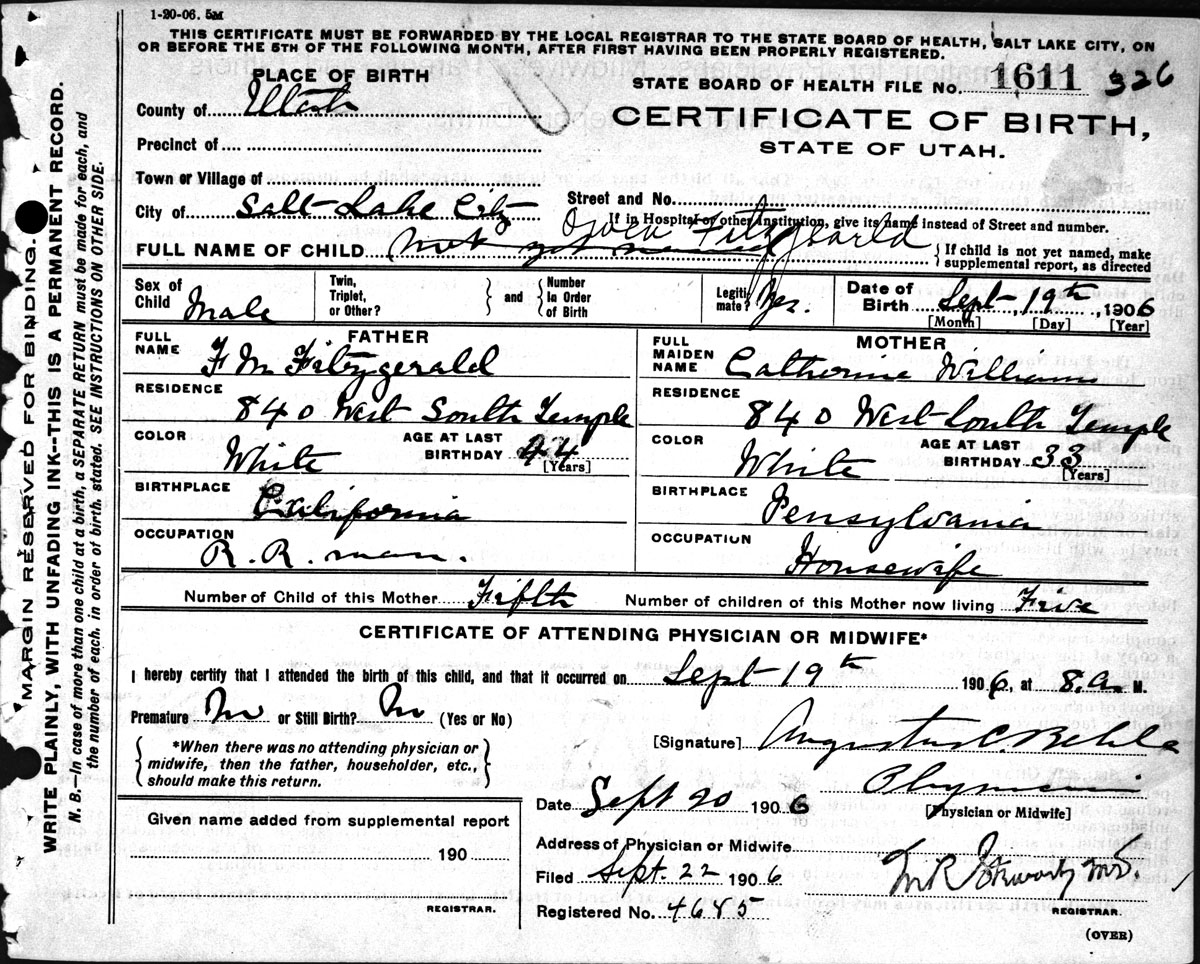 1-20-06. 5M
THIS CERTIFICATE MUST BE FORWARDED BY THE LOCAL REGISTRAR TO THE STATE BOARD OF HEALTH, SALT LAKE CITY, ON
OR BEFORE THE 5TH OF THE FOLLOWING MONTH, AFTER FIRST HAVING BEEN PROPERLY REGISTERED.
PLACE OF BIRTH
STATE BOARD OF HEALTH FILE No. 1611 326
County of Utah
CERTIFICATE OF BIRTH,
STATE OF UTAH.
Precinct of
Town or Village of
City of Salt Lake City
Street and No.
If in Hospital or other Institution, give its name instead of Street and number.
FULL NAME OF CHILD Not yet named Fitzgearld
{ If child is not yet named, make
supplemental report, as directed
Sex of Child Male
Twin, Triplet, or Other? } and { Number In Order of Birth
Legitimate? Yes.
Date of Birth Sept 19th, 1906
[Month] [Day] [Year]
FATHER
FULL NAME F M Fitzgerald
RESIDENCE
840 West South Temple
COLOR White AGE AT LAST BIRTHDAY 44
[Years]
BIRTHPLACE
California
OCCUPATION
R. R. man.
MOTHER
FULL MAIDEN NAME Catherine Williams
RESIDENCE
840 West South Temple
COLOR White AGE AT LAST BIRTHDAY 33
[Years]
BIRTHPLACE
Pensylvania
OCCUPATION
Housewife
Number of Child of this Mother Fifth Number of children of this Mother now living Five
CERTIFICATE OF ATTENDING PHYSICIAN OR MIDWIFE*
I hereby certify that I attended the birth of this child, and that it occurred on Sept 19th 1906, at 8. a M.
Premature No or Still Birth? No (Yes or No)
{ *When there was no attending physician or
midwife, then the father, householder, etc.,
should make this return. }
[Signature] Augustus C. Behle
Physician
[Physician or Midwife]
Date Sept 20 1906
Address of Physician or Midwife
Filed Sept. 22 1906
M.D.
Registered No. 4645
REGISTRAR.
(OVER)
Given name added from supplemental report
190
REGISTRAR.
MARGIN RESERVED FOR BINDING.
WRITE PLAINLY, WITH UNFADING INK--THIS IS A PERMANENT RECORD.
N. B.—In case of more than one child at a birth, a SEPARATE RETURN must be made for each, and
the number of each, in order of birth, stated. SEE INSTRUCTIONS ON OTHER SIDE.